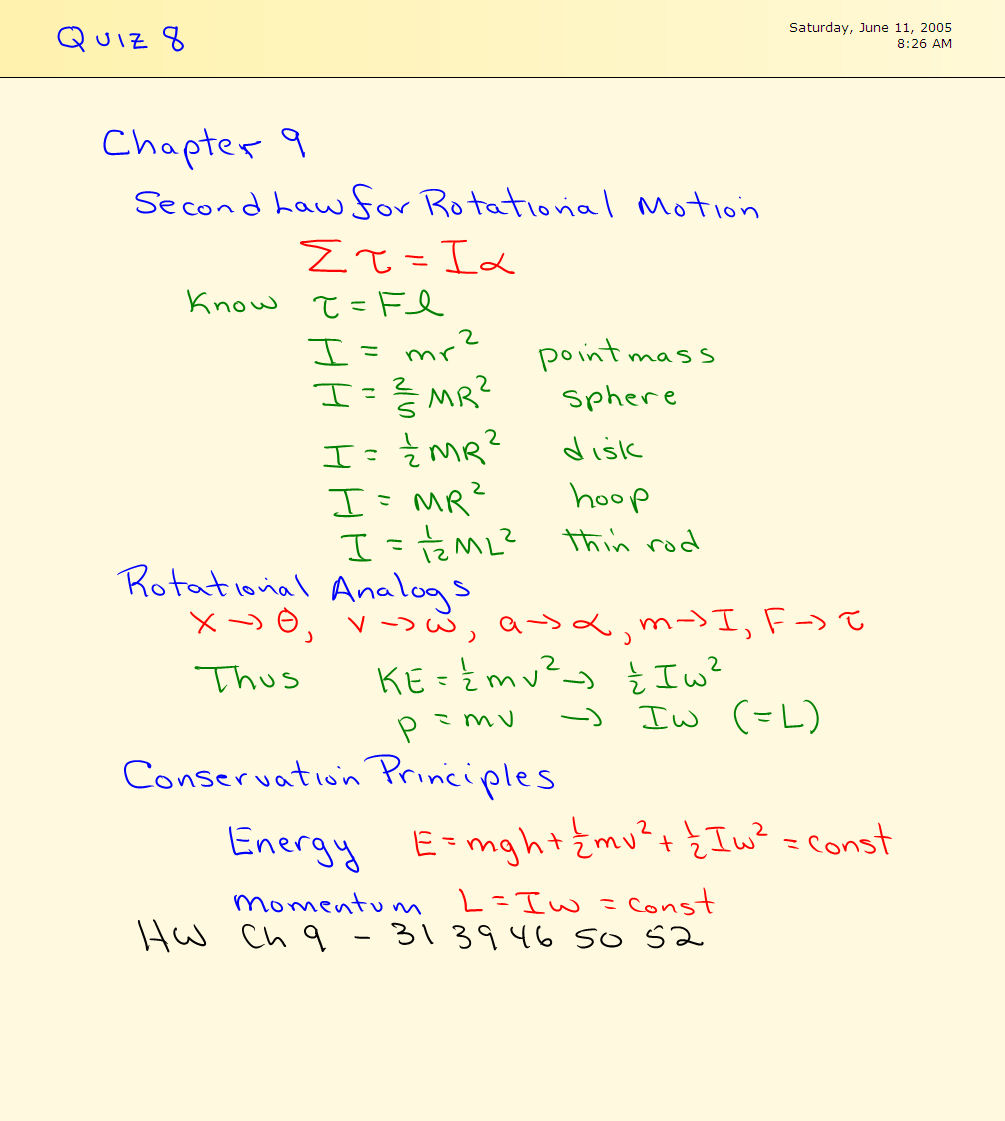 Quiz 8
Saturday, June 11, 2005
8:26 AM
Chapter 9
Second Law for Rotational Motion
Στ = Iα
Know τ = Fl
I = mr² point mass
I = 2/5 MR² sphere
I = 1/2 MR² disk
I = MR² hoop
I = 1/12 ML² thin rod
Rotational Analogs
x → θ, v → ω, a → α, m → I, F → τ
Thus KE = 1/2 mv² → 1/2 Iω²
p = mv → Iω (= L)
Conservation Principles
Energy E = mgh + 1/2 mv² + 1/2 Iω² = const
momentum L = Iω = const
HW Ch 9 - 31 39 46 50 52